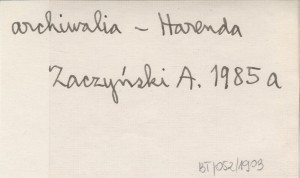 archiwalia – Harenda
Zaczyński A. 1985 a
BT/052/1903